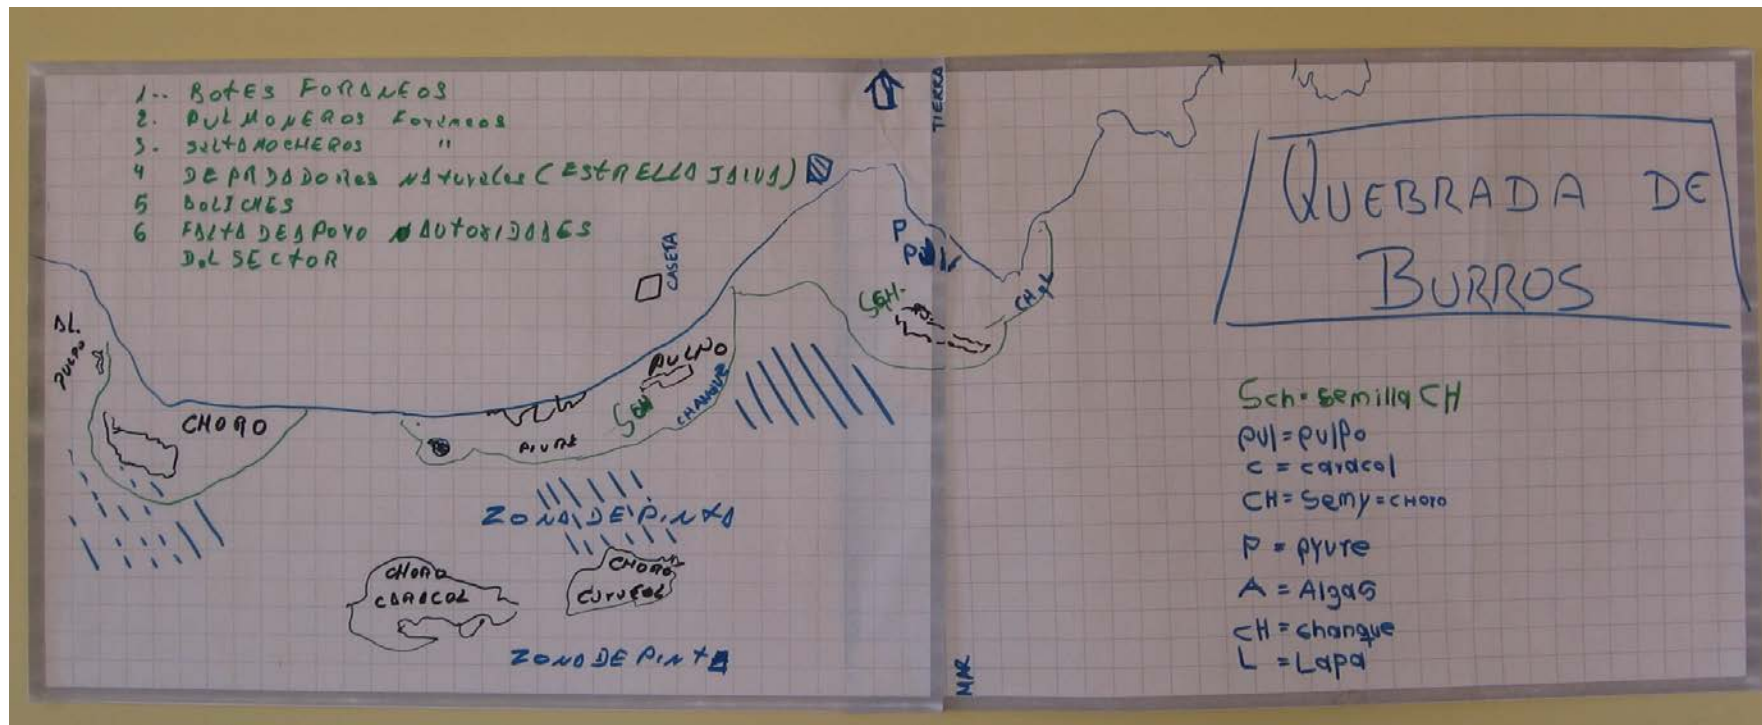 1.. BOTES FORANEOS
2. PULMONEROS Foraneos
3. SALTAMOCHEROS "
4 DEPRDADORes NAturales (ESTRELLA JAIVA)
5 BOLICHES
6 FALTA DE APOYO AUTORIDADES
DEL SECTOR
TIERRA
QUEBRADA DE
BURROS
CASETA
P
PUL
SCH.
CH y L
AL.
PULPO
CHORO
PULPO
SCH
CHANQUE
PIURE
ZONA DE PINTA
CHORO
CARACOL
CHORO
CARACOL
ZONA DE PINTA
MAR
Sch = semilla CH
pul = pulpo
C = caracol
CH = Semy = CHORO
P = pyure
A = Algas
CH = changue
L = Lapa